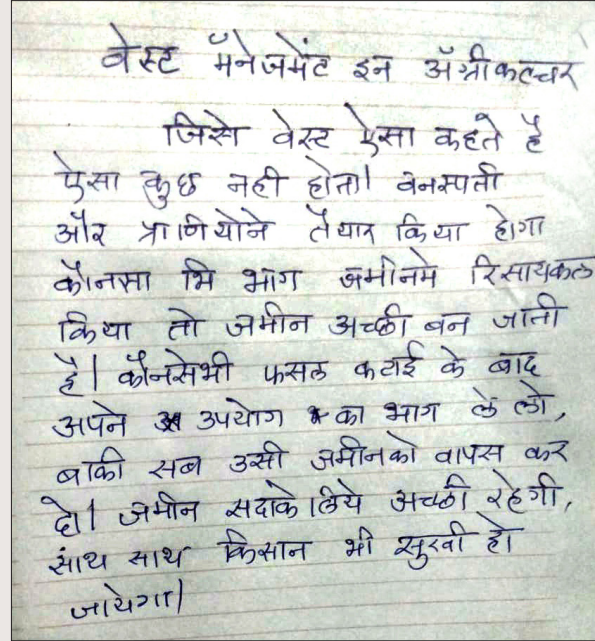 वेस्ट मॅनेजमेंट इन ॲग्रीकल्चर
जिसे वेस्ट ऐसा कहते है
ऐसा कुछ नही होता। वनस्पती
और प्राणियोने तैयार किया होगा
कौनसा भि भाग जमीनमे रिसायकल
किया तो जमीन अच्छी बन जाती
है। कौनसेभी फसल कटाई के बाद
अपने उपयोग का भाग ले लो,
बाकी सब उसी जमीनको वापस कर
दो। जमीन सदाके लिये अच्छी रहेगी,
सांथ साथ किसान भी सुखी हो
जायेगा।